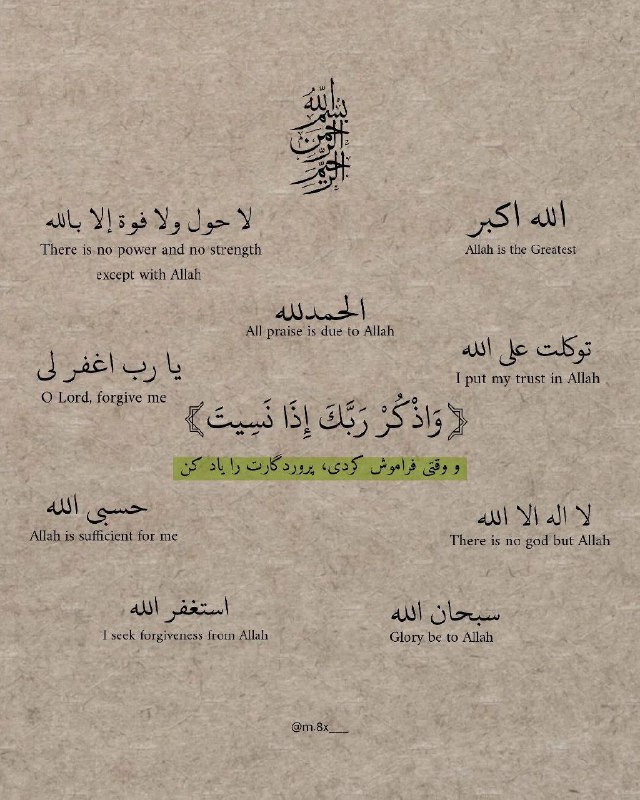 بسم الله
الرحمن
الرحيم
الله اكبر
Allah is the Greatest
لا حول ولا فوة إلا بالله
There is no power and no strength
except with Allah
الحمدلله
All praise is due to Allah
توكلت على الله
I put my trust in Allah
يا رب اغفر لى
O Lord, forgive me
﴿وَاذْكُرْ رَبَّكَ إِذَا نَسِيتَ﴾
و وقتی فراموش کردی، پروردگارت را یاد کن
لا اله الا الله
There is no god but Allah
حسبى الله
Allah is sufficient for me
سبحان الله
Glory be to Allah
استغفر الله
I seek forgiveness from Allah
@m.8x___